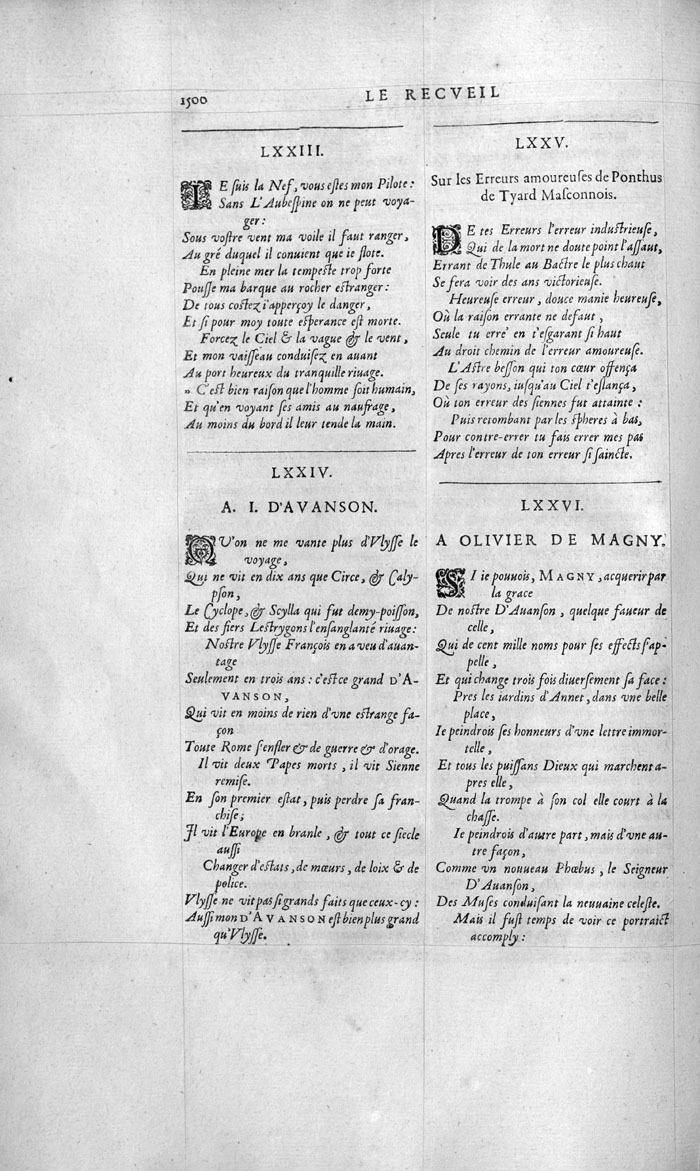 1500
LE RECVEIL
LXXIII.
IE ſuis la Nef, vous eſtes mon Pilote:
Sans L'Aubeſpine on ne peut voya-
ger:
Sous voſtre vent ma voile il faut ranger,
Au gré duquel il conuient que ie flote.
En pleine mer la tempeſte trop forte
Pouſſe ma barque au rocher eſtranger:
De tous coſtez i'apperçoy le danger,
Et ſi pour moy toute eſperance eſt morte.
Forcez le Ciel & la vague & le vent,
Et mon vaiſſeau conduiſez en auant
Au port heureux du tranquille riuage.
» C'eſt bien raiſon que l'homme ſoit humain,
Et qu'en voyant ſes amis au naufrage,
Au moins du bord il leur tende la main.
LXXIV.
A. I. D'AVANSON.
QV'on ne me vante plus d'Vlyſſe le
voyage,
Qui ne vit en dix ans que Circe, & Caly-
pſon,
Le Cyclope, & Scylla qui fut demy-poiſſon,
Et des fiers Leſtrygons l'enſanglanté riuage:
Noſtre Vlyſſe François en a veu d'auan-
tage
Seulement en trois ans: c'eſt ce grand D'A-
VANSON,
Qui vit en moins de rien d'vne eſtrange fa-
çon
Toute Rome s'enfler & de guerre & d'orage.
Il vit deux Papes morts, il vit Sienne
remiſe.
En ſon premier eſtat, puis perdre ſa fran-
chiſe;
Il vit l'Europe en branle, & tout ce ſiecle
auſſi
Changer d'eſtats, de mœurs, de loix & de
police.
Vlyſſe ne vit pas ſi grands faits que ceux-cy:
Auſſi mon D'AVANSON eſt bien plus grand
qu'Vlyſſe.
LXXV.
Sur les Erreurs amoureuſes de Ponthus
de Tyard Maſconnois.
DE tes Erreurs l'erreur induſtrieuſe,
Qui de la mort ne doute point l'aſſaut,
Errant de Thule au Bactre le plus chaut
Se fera voir des ans victorieuſe.
Heureuſe erreur, douce manie heureuſe,
Où la raiſon errante ne defaut,
Seule tu erre' en t'eſgarant ſi haut
Au droit chemin de l'erreur amoureuſe.
L'Aſtre beſſon qui ton cœur offença
De ſes rayons, iuſqu'au Ciel t'eſlança,
Où ton erreur des ſiennes fut attainte:
Puis retombant par les ſpheres à bas,
Pour contre-errer tu fais errer mes pas
Apres l'erreur de ton erreur ſi ſaincte.
LXXVI.
A OLIVIER DE MAGNY.
SI ie pouuois, MAGNY, acquerir par
la grace
De noſtre D'Auanſon, quelque faueur de
celle,
Qui de cent mille noms pour ſes effects s'ap-
pelle,
Et qui change trois fois diuerſement ſa face:
Pres les iardins d'Annet, dans vne belle
place,
Ie peindrois ſes honneurs d'vne lettre immor-
telle,
Et tous les puiſſans Dieux qui marchent a-
pres elle,
Quand la trompe à ſon col elle court à la
chaſſe.
Ie peindrois d'autre part, mais d'vne au-
tre façon,
Comme vn nouueau Phœbus, le Seigneur
D'Auanſon,
Des Muſes conduiſant la neuuaine celeſte.
Mais il fuſt temps de voir ce portraict
accomply: